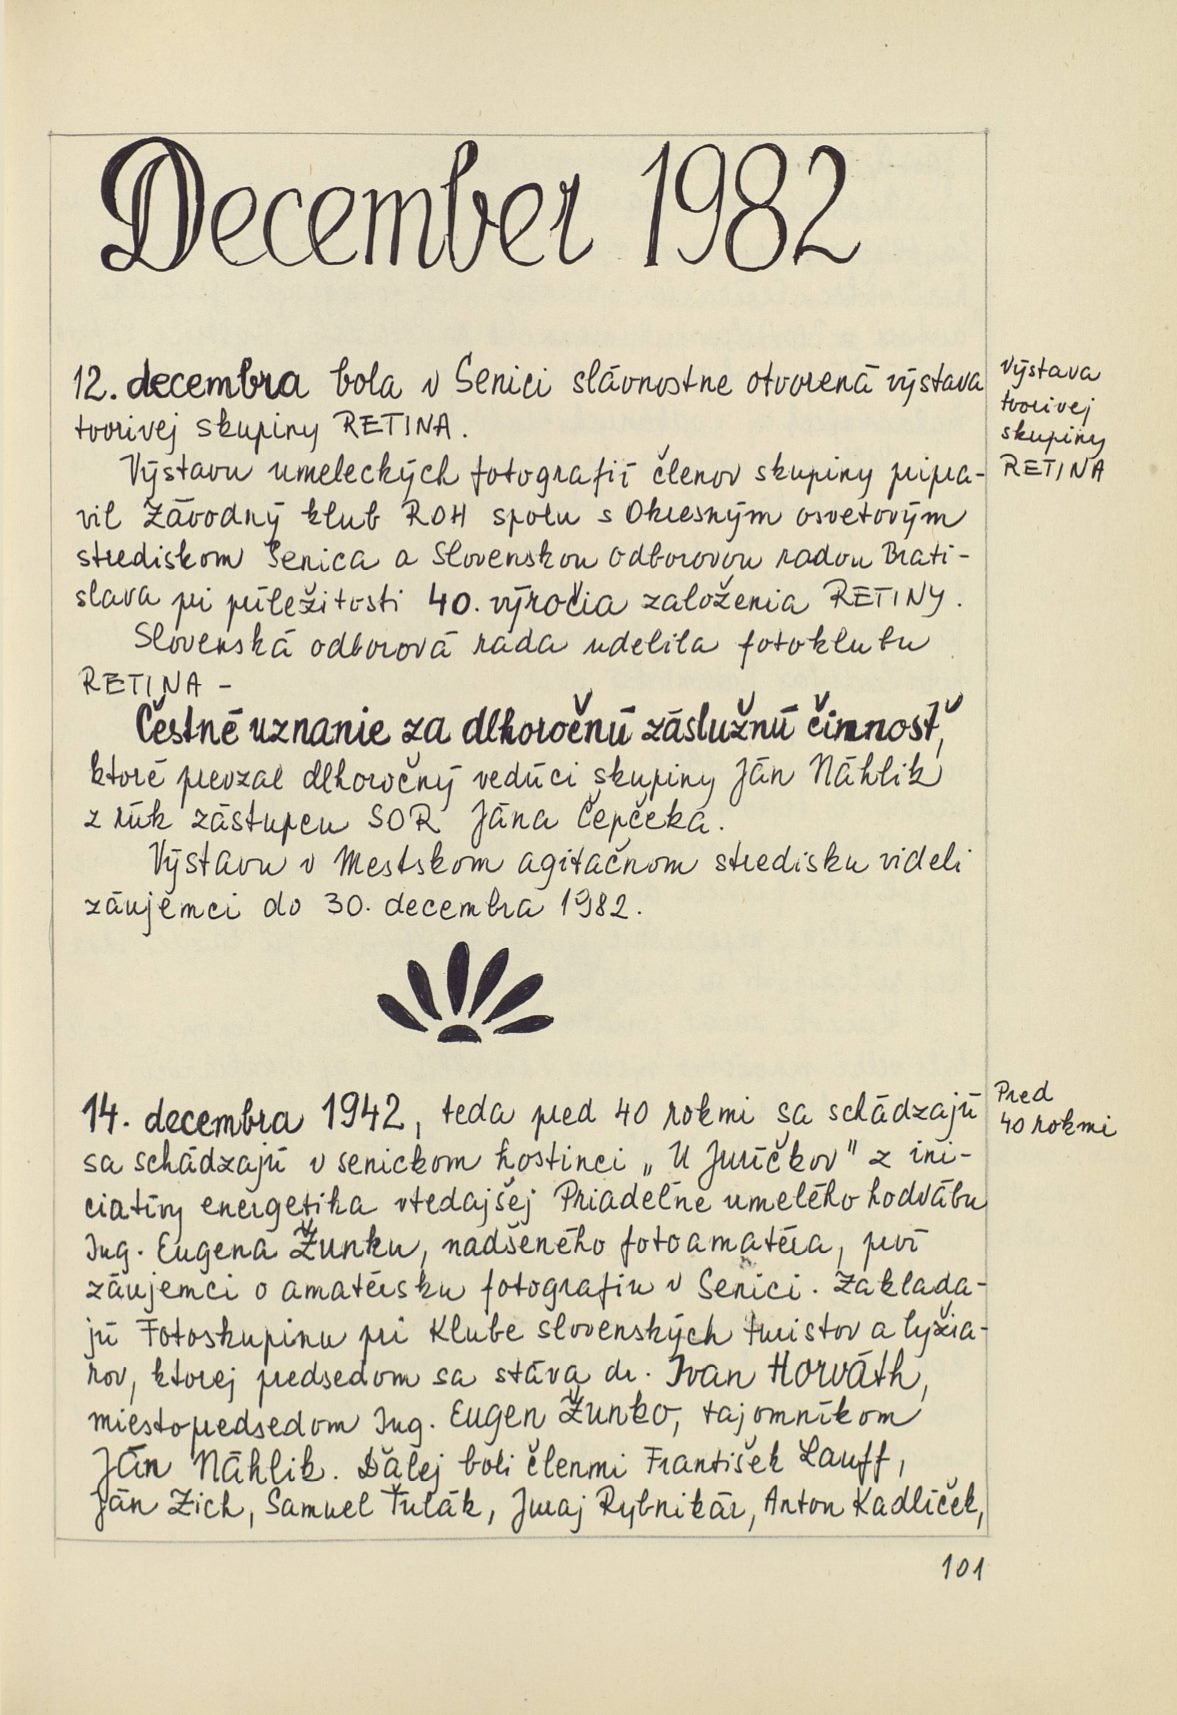 December 1982
12. decembra bola v Senici slávnostne otvorená výstava
tvorivej skupiny RETINA.
Výstavu umeleckých fotografií členov skupiny pripra-
vil Závodný klub ROH spolu s Okresným osvetovým
strediskom Senica a Slovenskou odborovou radou Brati-
slava pri príležitosti 40. výročia založenia RETINY.
Slovenská odborová rada udelila fotoklubu
RETINA -
Čestné uznanie za dlhoročnú záslužnú činnosť,
ktoré prevzal dlhoročný vedúci skupiny Ján Náhlik
z rúk zástupcu SOR Jána Čepčeka.
Výstavu v Mestskom agitačnom stredisku videli
záujemci do 30. decembra 1982.
Výstava
tvorivej
skupiny
RETINA
14. decembra 1942, teda pred 40 rokmi sa schádzajú
sa schádzajú v senickom hostinci „U Juríčkov" z ini-
ciatívy energetika vtedajšej Priadeľne umelého hodvábu
Ing. Eugena Žunku, nadšeného fotoamatéra, prví
záujemci o amatérsku fotografiu v Senici. Zaklada-
jú Fotoskupinu pri Klube slovenských turistov a lyžia-
rov, ktorej predsedom sa stáva dr. Ivan Horváth,
miestopredsedom Ing. Eugen Žunko, tajomníkom
Ján Náhlik. Ďalej boli členmi František Lauff,
Ján Zich, Samuel Ťulák, Juraj Rybnikár, Anton Kadlíček,
Pred
40 rokmi
101